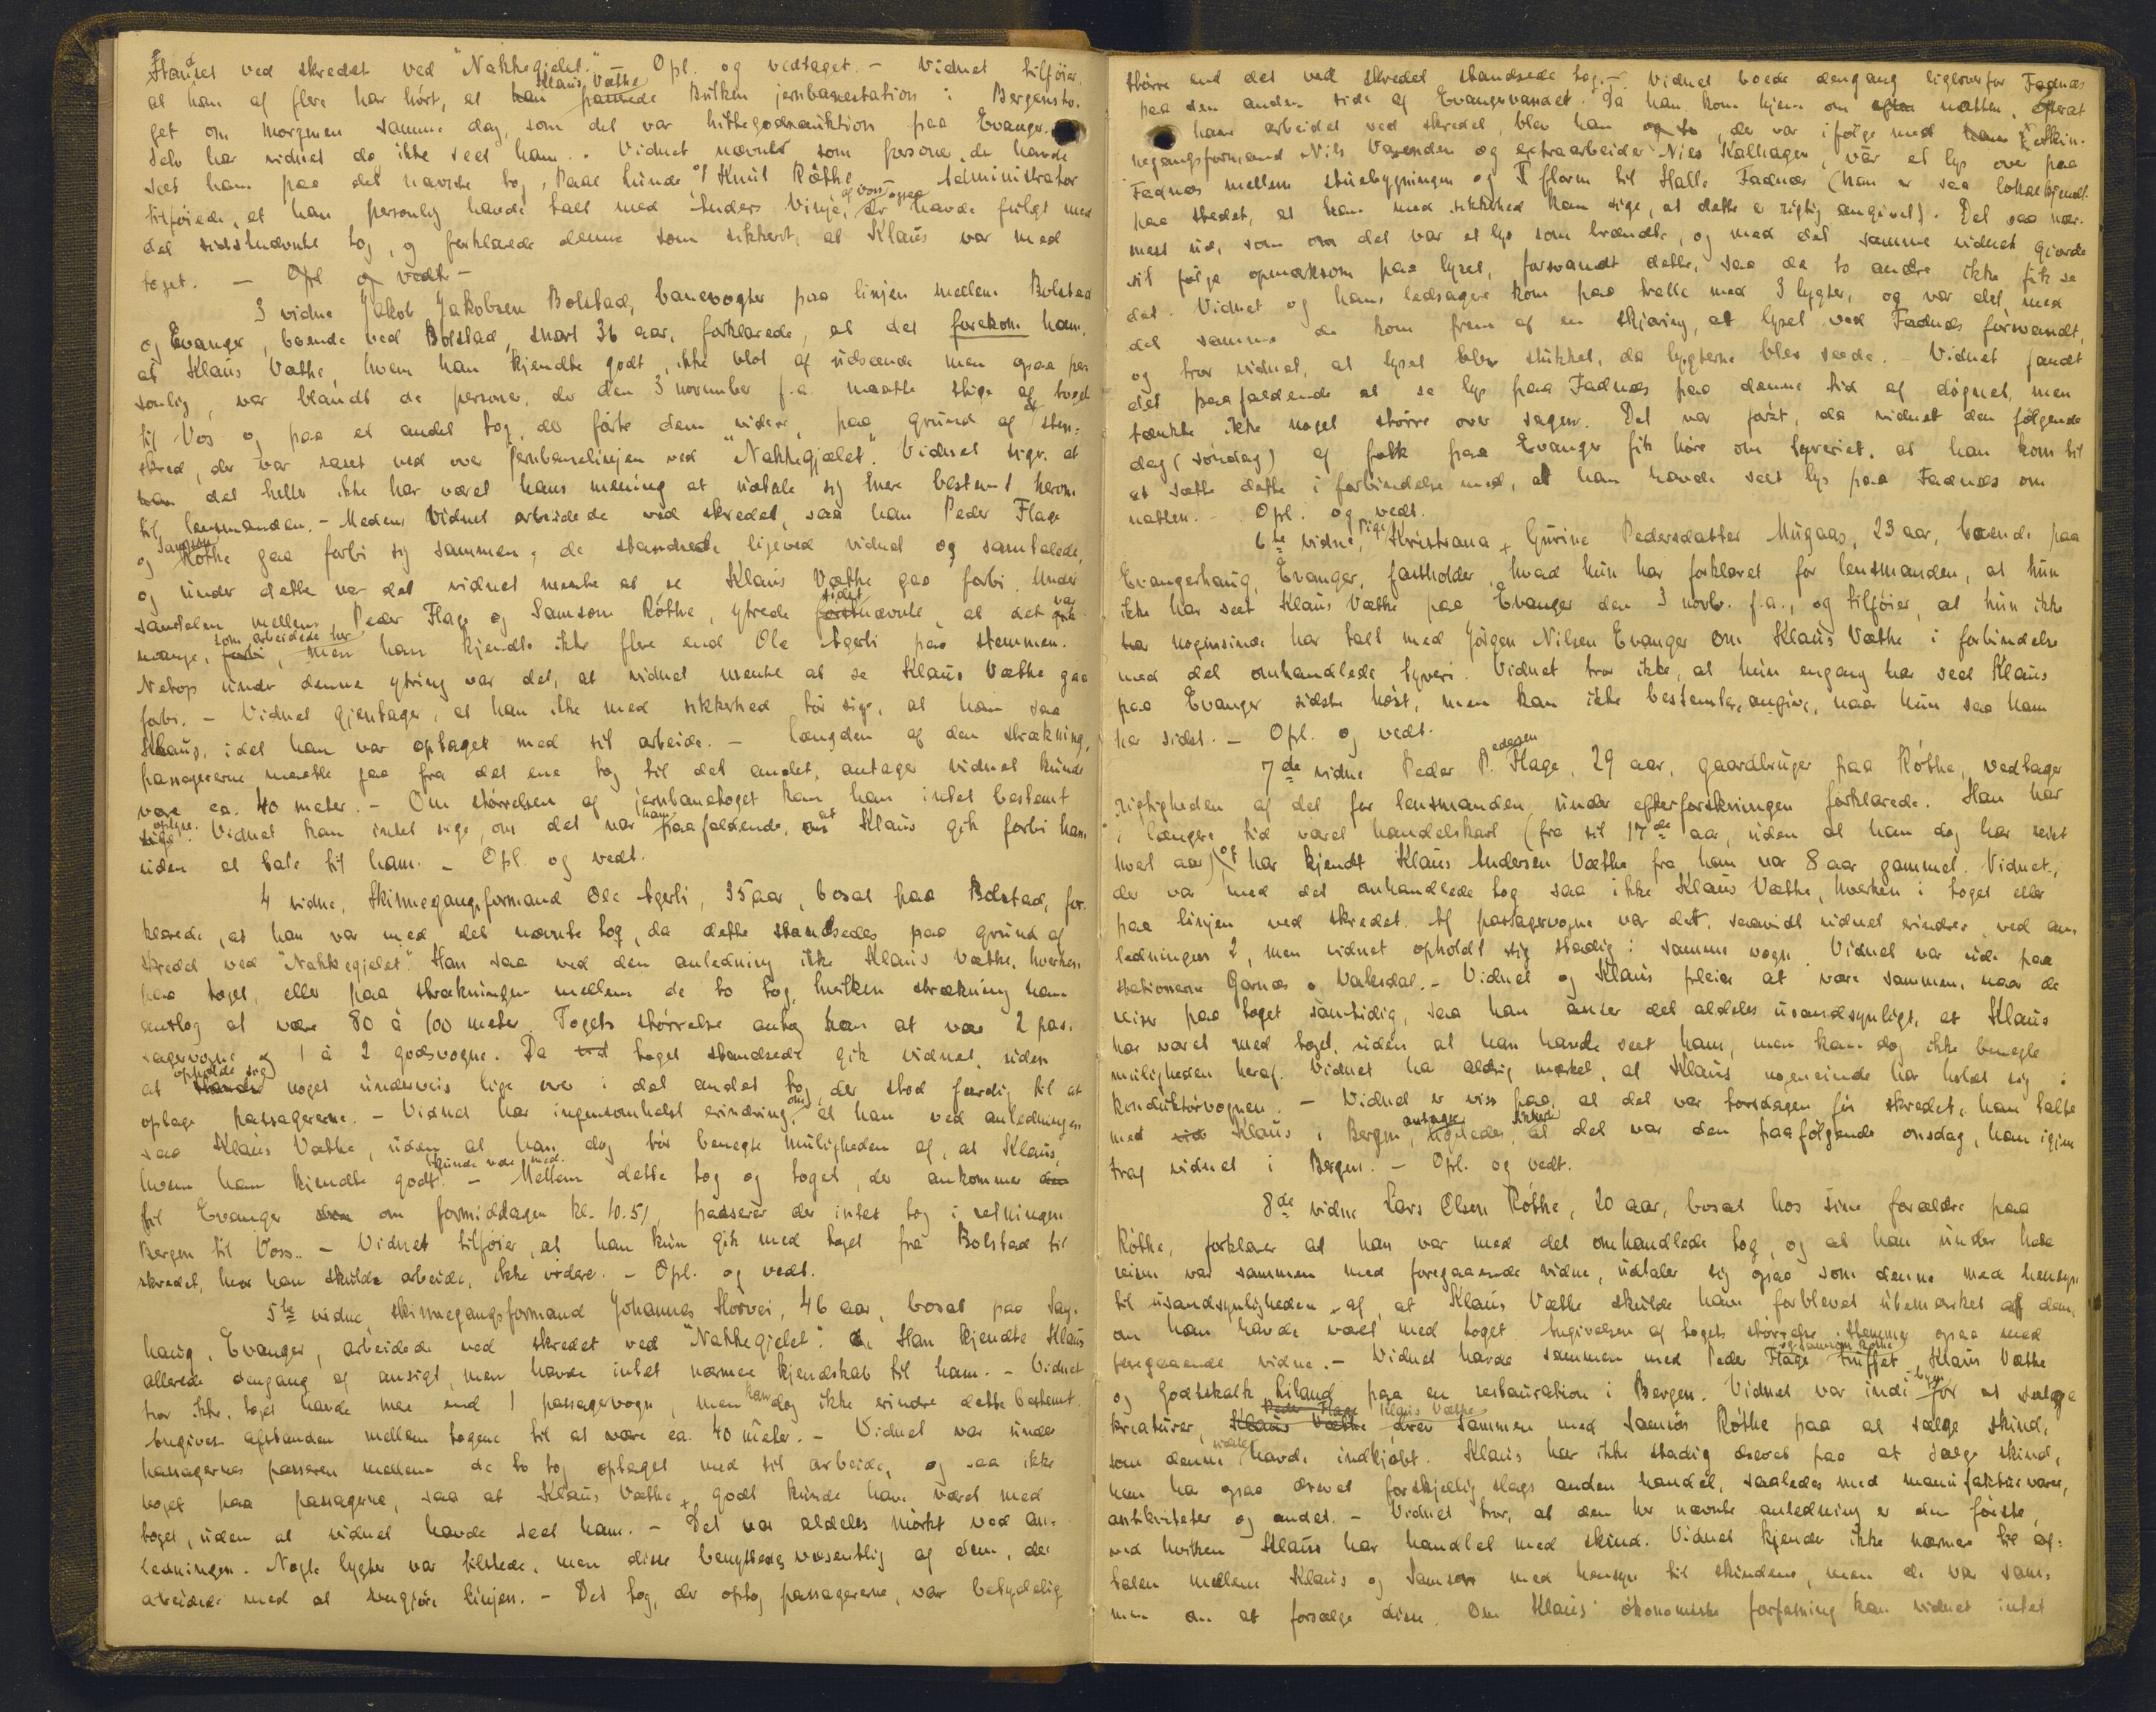 Standset ved skredet ved "Nakkegjelet." Opl. og vedtaget. - Vidnet tilføier,
at han af flere har hørt, at Klaus Væthe passerede Bulken jernbanestation i Bergensto-
get om morgenen samme dag, som det var hittegodsauktion paa Evanger.
Selv har vidnet da ikke seet ham. - Vidnet nævnte som personer, der havde
seet ham paa det nævnte tog, Paal Lunde og Knut Røthe. Administrator
tilføiede, at han personlig havde talt med Anders Vinje, af Voss, der ogsaa havde fulgt med
det sidstnævnte tog, og forklarede denne som sikkert, at Klaus var med
toget. - Opl og vedt. -
3 vidne Jakob Jakobsen Bolstad, banevogter paa linjen mellem Bolstad
og Evanger, boende ved Bolstad, snart 36 aar, forklarede, at det forekom ham,
at Klaus Væthe, hvem han kjendte godt, ikke blot af udseende men ogsaa per-
sonlig, var blandt de personer, der den 3 november f.a. maatte stige af toget
til Vos og paa et andet tog, der førte dem videre, paa grund af et sten-
skred, der var raset ned over jernbanelinjen ved "Nakkegjælet". Vidnet siger, at
han det heller ikke har været hans mening at udtale sig mere bestemt herom
til lensmanden. - Medens vidnet arbeidede ved skredet, saa han Peder Flage
og Samson Røthe gaa forbi sig sammen; de standsede ligeved vidnet og samtalede,
og under dette var det vidnet mente at se Klaus Væthe gaa forbi. Under
samtalen mellem Peder Flage og Samsom Røthe, ytrede sidstnævnte, at det var
mange, som arbeidede her, men han kjendte ikke flere end Ole Agerli paa stemmen.
Netop under denne ytring var det, at vidnet mente at se Klaus Væthe gaa
forbi. - Vidnet gjentager, at han ikke med sikkerhed tør sige, at han saa
Klaus, idet han var optaget med sit arbeide. - Længden af den strækning,
passagererne maatte gaa fra det ene tog til det andet, antager vidnet kunde
være ca. 40 meter. - Om størrelsen af jernbanetoget kan han intet bestemt
oplyse. Vidnet kan intet sige, om det var ham paafaldende, at Klaus gik forbi ham
uden at tale til ham. - Opl. og vedt.
4 vidne, Skinnegangsformand Ole Agerli, 35 aar, bosat paa Bolstad, for-
klarede, at han var med det nævnte tog, da dette standsedes paa grund af
skredet ved "Nakkegjelet." Han saa ved den anledning ikke Klaus Væthe, hverken
paa toget, eller paa strækningen mellem de to tog, hvilken strækning han
antog at være 80 à 100 meter. Togets størrelse antog han at være 2 pas-
sagervogne og 1 à 2 godsvogne. Da ved toget standsede gik vidnet, uden
at opholde sig noget underveis lige over i det andet tog, der stod færdig til at
optage passagererne. - Vidnet har ingensomhelst erindring om, at han ved anledningen
saa Klaus Væthe, uden at han dog tør benegte muligheden af, at Klaus,
hvem han kjendte godt kunde være med. - Mellem dette tog og toget, der ankommer
til Evanger om formiddagen kl. 10.51, passerer der intet tog i retningen
Bergen til Voss. - Vidnet tilføier, at han kun gik med toget fra Bolstad til
skredet, hvor han skulde arbeide, ikke videre. - Opl. og vedt.
5te vidne, skinnegangsformand Johannes Horvei, 46 aar, bosat paa
haug, Evanger, arbeidede ved skredet ved "Nakkegjelet." Han kjendte Klaus
allerede dengang af ansigt, men havde intet nærmere kjendskab til ham. - Vidnet
tror ikke, toget havde mere end 1 passagervogn, men kan dog ikke erindre dette bestemt.
Angiver afstanden mellem togene til at være ca. 40 meter. - Vidnet var under
passagernes passeren mellem de to tog optaget med sit arbeide, og saa ikke
noget paa passagerne, saa at Klaus Væthe godt kunde have været med
toget, uden at vidnet havde seet ham. - Det var aldeles mørkt ved an-
ledningen. Nogle lygter var tilstede, men disse benyttedes væsentlig af dem, der
arbeidede med at rengjøre linjen. - Det tog, der optog passagererne, var betydelig
større end det ved skredet standsede tog. - Vidnet boede dengang ligeoverfor Fadnæs
paa den anden side af Evangervandet. Da han kom hjem om natten, efterat
have arbeidet ved skredet, blev han, der var ifølge med skin-
negangsformand Nils og extraarbeider Nils Kalhagen, vâr et lys over paa
Fadnæs mellem stuebygningen og floren til Halle Fadnæs (han er saa lokalkjendt
paa stedet, at han med sikkerhed kan sige, at dette er rigtig angivet). Det saa nær-
mest ud, som om det var et lys som brændte, og med det samme vidnet gjorde
sit følge opmerksom paa lyset, forsvandt dette, saa de to andre ikke fik se
det. Vidnet og hans ledsagere kom paa tralle med 3 lygter, og var det med
det samme de kom frem af en skjæring, at lyset ved Fadnæs forsvandt,
og tror vidnet, at lyset blev slukket, da lygterne blev seede. Vidnet fandt
det paafaldende at se lys paa Fadnæs paa denne tid af døgnet, men
tænkte ikke noget større over sagen. Det var først, da vidnet den følgende
dag (søndag) af folk fra Evanger fik høre om tyveriet, at han kom til
at sætte dette i forbindelse med, at han havde seet lys paa Fadnæs om
natten. - Opl. og vedt.
6te vidne, pige Kristiana Gurine Pedersdatter Mugaas, 23 aar, boende paa
Evangerhaug, Evanger, fastholder, hvad hun har forklaret for lensmanden, at hun
ikke har seet Klaus Væthe paa Evanger den 3 novbr. f.a., og tilføier, at hun ikke
har nogensinde har talt med Jørgen Nilsen Evanger om Klaus Væthe i forbindelse
med det omhandlede tyveri. Vidnet tror ikke, at hun engang har seet Klaus
paa Evanger sidste høst, men kan ikke bestemt angive, naar hun saa ham
her sidst. - Opl. og vedt.
7de vidne Peder Pedersen Flage, 29 aar, gaardbruger paa Røthe, vedtager
rigtigheden af det for lensmanden under efterforskningen forklarede. Han har
i længere tid været handelskarl (fra sit 17de aar, uden at han dog har reist
hvert aar) og har kjendt Klaus Andersen Væthe fra han var 8 aar gammel. Vidnet,
der var med det omhandlede tog saa ikke Klaus Væthe, hverken i toget eller
paa linjen ved skredet. Af passagervogne var det, saavidt vidnet erindrer, ved an-
ledningen 2, men vidnet opholdt sig stadig i samme vogn. Vidnet var ude paa
stationerne Garnæs o. Vaksdal. - Vidnet og Klaus pleier at være sammen, naar de
reiser paa toget samtidig, saa han anser det aldeles usandsynligt, at Klaus
har været med toget, uden at han havde seet ham, men kan dog ikke benegte
muligheden heraf. Vidnet har aldrig mærket, at Klaus nogensinde har holdt sig i
konduktørvognen. - Vidnet er viss paa, at det var torsdagen før skredet, han talte
med Klaus i Bergen, antager ligeledes sikkert at det var den paafølgende onsdag, han igjen
traf vidnet i Bergen. - Opl. og vedt.
8de vidne Lars Olsen Røthe, 20 aar, bosat hos sine forældre paa
Røthe, forklarer at han var med det omhandlede tog, og at han under hele
reisen var sammen med foregaaende vidne, udtaler sig ogsaa som denne med hensyn
til usandsynligheden af, at Klaus Væthe skulde have forblevet ubemerket af dem,
om han havde været med toget. Angivelsen af togets størrelse stemmer ogsaa med
foregaaende vidne. - Vidnet havde sammen med Peder Flage og Samson Røthe truffet Klaus Væthe
og Godtskalk Liland paa en restauration i Bergen. Vidnet var inde i byen for at sælge
kreaturer, Klaus Væthe drev sammen med Samson Røthe paa at sælge skind,
som denne sidste havde indkjøbt. Klaus har ikke stadig drevet paa at sælge skind,
han har ogsaa drevet forskjellig slags anden handel, saaledes med manufakturvarer,
antikviteter og andet. - Vidnet tror, at den her nævnte anledning er den første,
ved hvilken Klaus har handlet med skind. Vidnet kjender ikke nærmere til af-
talen mellem Klaus og Samson med hensyn til skindene, men de var sam-
men om at forsælge disse. Om Klaus' økonomiske forfatning kan vidnet intet